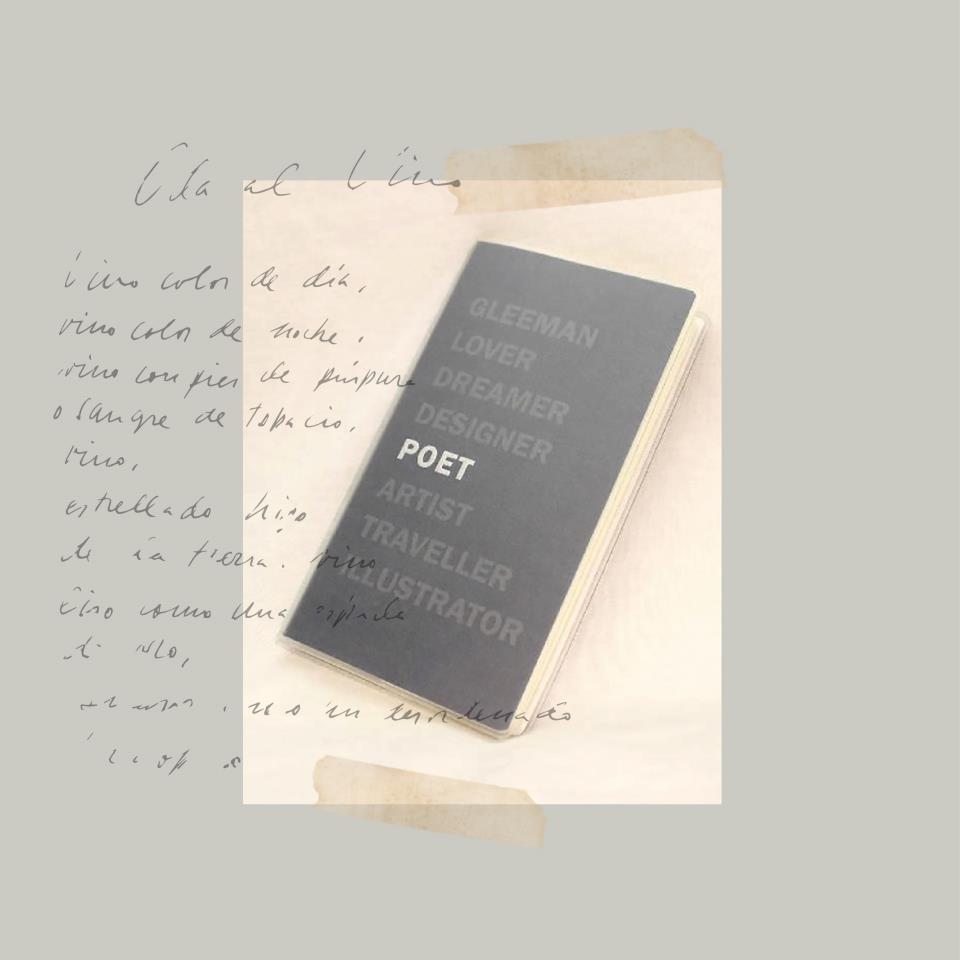 Oda al Vino
Vino color de día,
vino color de noche,
vino con pies de púrpura
o sangre de topacio,
vino,
estrellado hijo
de la tierra, vino
liso como una espada
de oro,
desordenado
GLEEMAN
LOVER
DREAMER
DESIGNER
POET
ARTIST
TRAVELLER
ILLUSTRATOR